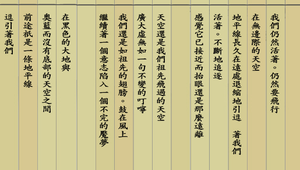 我們仍然活著。仍然要飛行
在無邊際的天空
地平線長久在遠處退縮地引逗著我們
活著。不斷地追逐
感覺它已接近而抬眼還是那麼遠離
天空還是我們祖先飛過的天空
廣大虛無如一句不變的叮嚀
我們還是如祖先的翅膀。鼓在風上
繼續著一個意志陷入一個不完的魘夢
在黑色的大地與
奧藍而沒有底部的天空之間
前途祇是一條地平線
逗引著我們